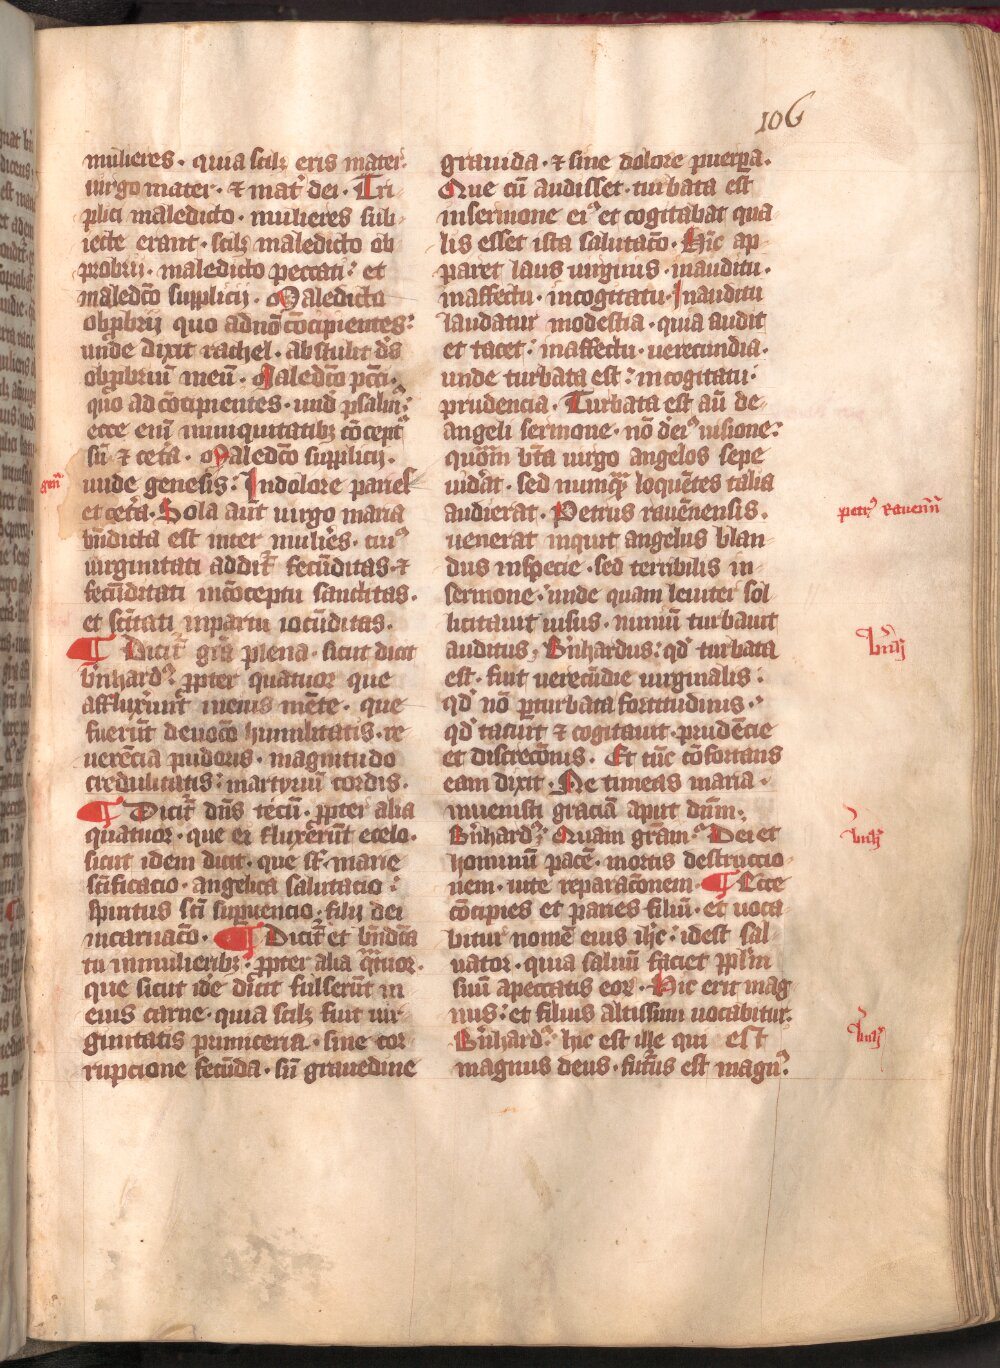 106
mulieres · quia scilʒ eris mater·
uirgo mater · ⁊ mat᷑ dei · Tri
plici maledicto · mulieres sub
iecte erant · scilʒ maledicto ob
probrii · maledicto peccati : et
maledc̄o supplicij · Maledicto
obp̱brij quo ad nō cōcipientes :
unde dixit rachel · abstulit dn̄s
obp̱briū meū · Maledc̄o pcc̄i ·
quo ad cōcipientes · und̄ psalm᷑ :
ecce eni᷑ in iniquitatibʒ cōcept᷑
sū ⁊ cetᷓa · Maledc̄o supplicij ·
gen᷑
unde genesis : In dolore paries
et cetᷓa · Sola aūt uirgo maria
bn̄dicta est inter mulieͬs · cuiꝰ
uirginitati addit᷑ fecūditas · ⁊
fecūditati in cōceptu sanctitas ·
et sc̄itati in partu iocūditas ·
¶ Dicit᷑ grᷓa plena · sicut dicit
bn̄hardꝰ · p̱pter quatuor que
affluxer̄ut in eius mēte · que
fuerūt deuocō humilitatis · re
uerēcia pudoris · magnitudo
credulitatis : martyriū cordis ·
¶ Dicit᷑ dn̄s tecū · p̱pter alia
quatuor · que ei fluxerūt e celo ·
sicut idem dicit · que sūt marie
sc̄ificatio · angelica salutatio :
spiritus sc̄i sup̱uencio · filij dei
incarnacō · ¶ Dicit᷑ et bn̄dc̄ta
tu in mulieribʒ · p̱pter alia qᷓtuor ·
que sicut idē dicit fulserūt in
eius carne · quia scilʒ fuit uir
ginitatis primiceria · sine cor
rupcione fecūda · sn̄ grauedine
grauida · ⁊ sine dolore puerp̱a ·
Que cū audisset · turbata est
in sermone eiꝰ et cogitabat qua
lis esset ista salutacō · Hic ap
paret laus uirginis · in auditu ·
in affectu · in cogitatu · In auditu
laudatur modestia · quia audit
et tacet : in affectu · uerecundia ·
unde turbata est : in cogitatu ·
prudencia · Turbata est aūt de
angeli sermone · nō de eiꝰ uisione :
quōm bt̄a uirgo angelos sepe
uiderat · sed numqᷓ loquētes talia
audierat · Petrus rauēnensis ·
petrꝰ rauenn᷑
uenerat inquit angelus blan
dus in specie · sed terribilis in
sermone · unde quam leuiter sol
licitauit uisus · nimiū turbauit
auditus, Bn̄hardus : qd̄ turbata
bn̄h
est · fuit uerecūdie uirginalis :
qd̄ nō p̱turbata fortitudinis ·
qd̄ tacuit ⁊ cogitauit · prudēcie
et discrecōnis · Et tūc cōfortans
eam dixit · Ne timeas maria ·
inuenisti graciā aput dn̄m ·
Bn̄hardꝰ : Quam grᷓam : Dei et
bn̄h
hominū pacē · mortis destructio
nem · uite reparacōnem · ¶ Ecce
cōcipies et paries filiū · et uoca
bitur nomē eius ih̄c : idest sal
uator · quia saluū faciet pp̄lm
suū a peccatis eoꝝ · Hic erit mag
nus : et filius altissimi uocabitur ·
Bn̄hardꝰ : hic est ille qui est
bn̄h
magnus deus · fut᷑us est magnꝰ ·